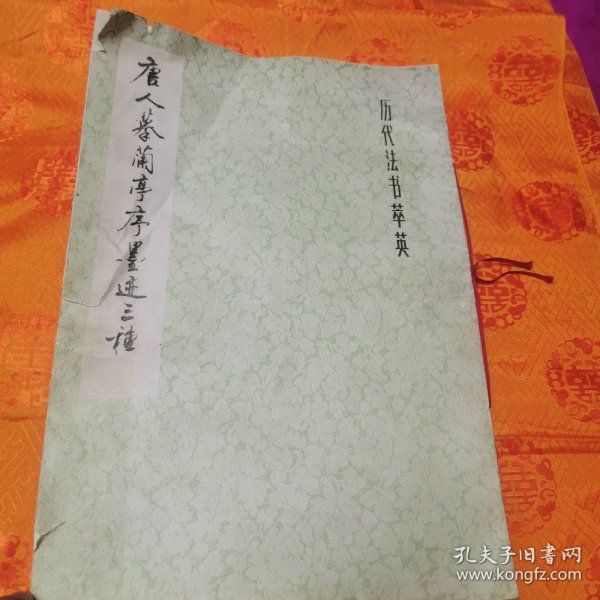 历代法书萃英
唐人摹蘭亭序墨迹三種
孔夫子旧书网
www.kongfz.com